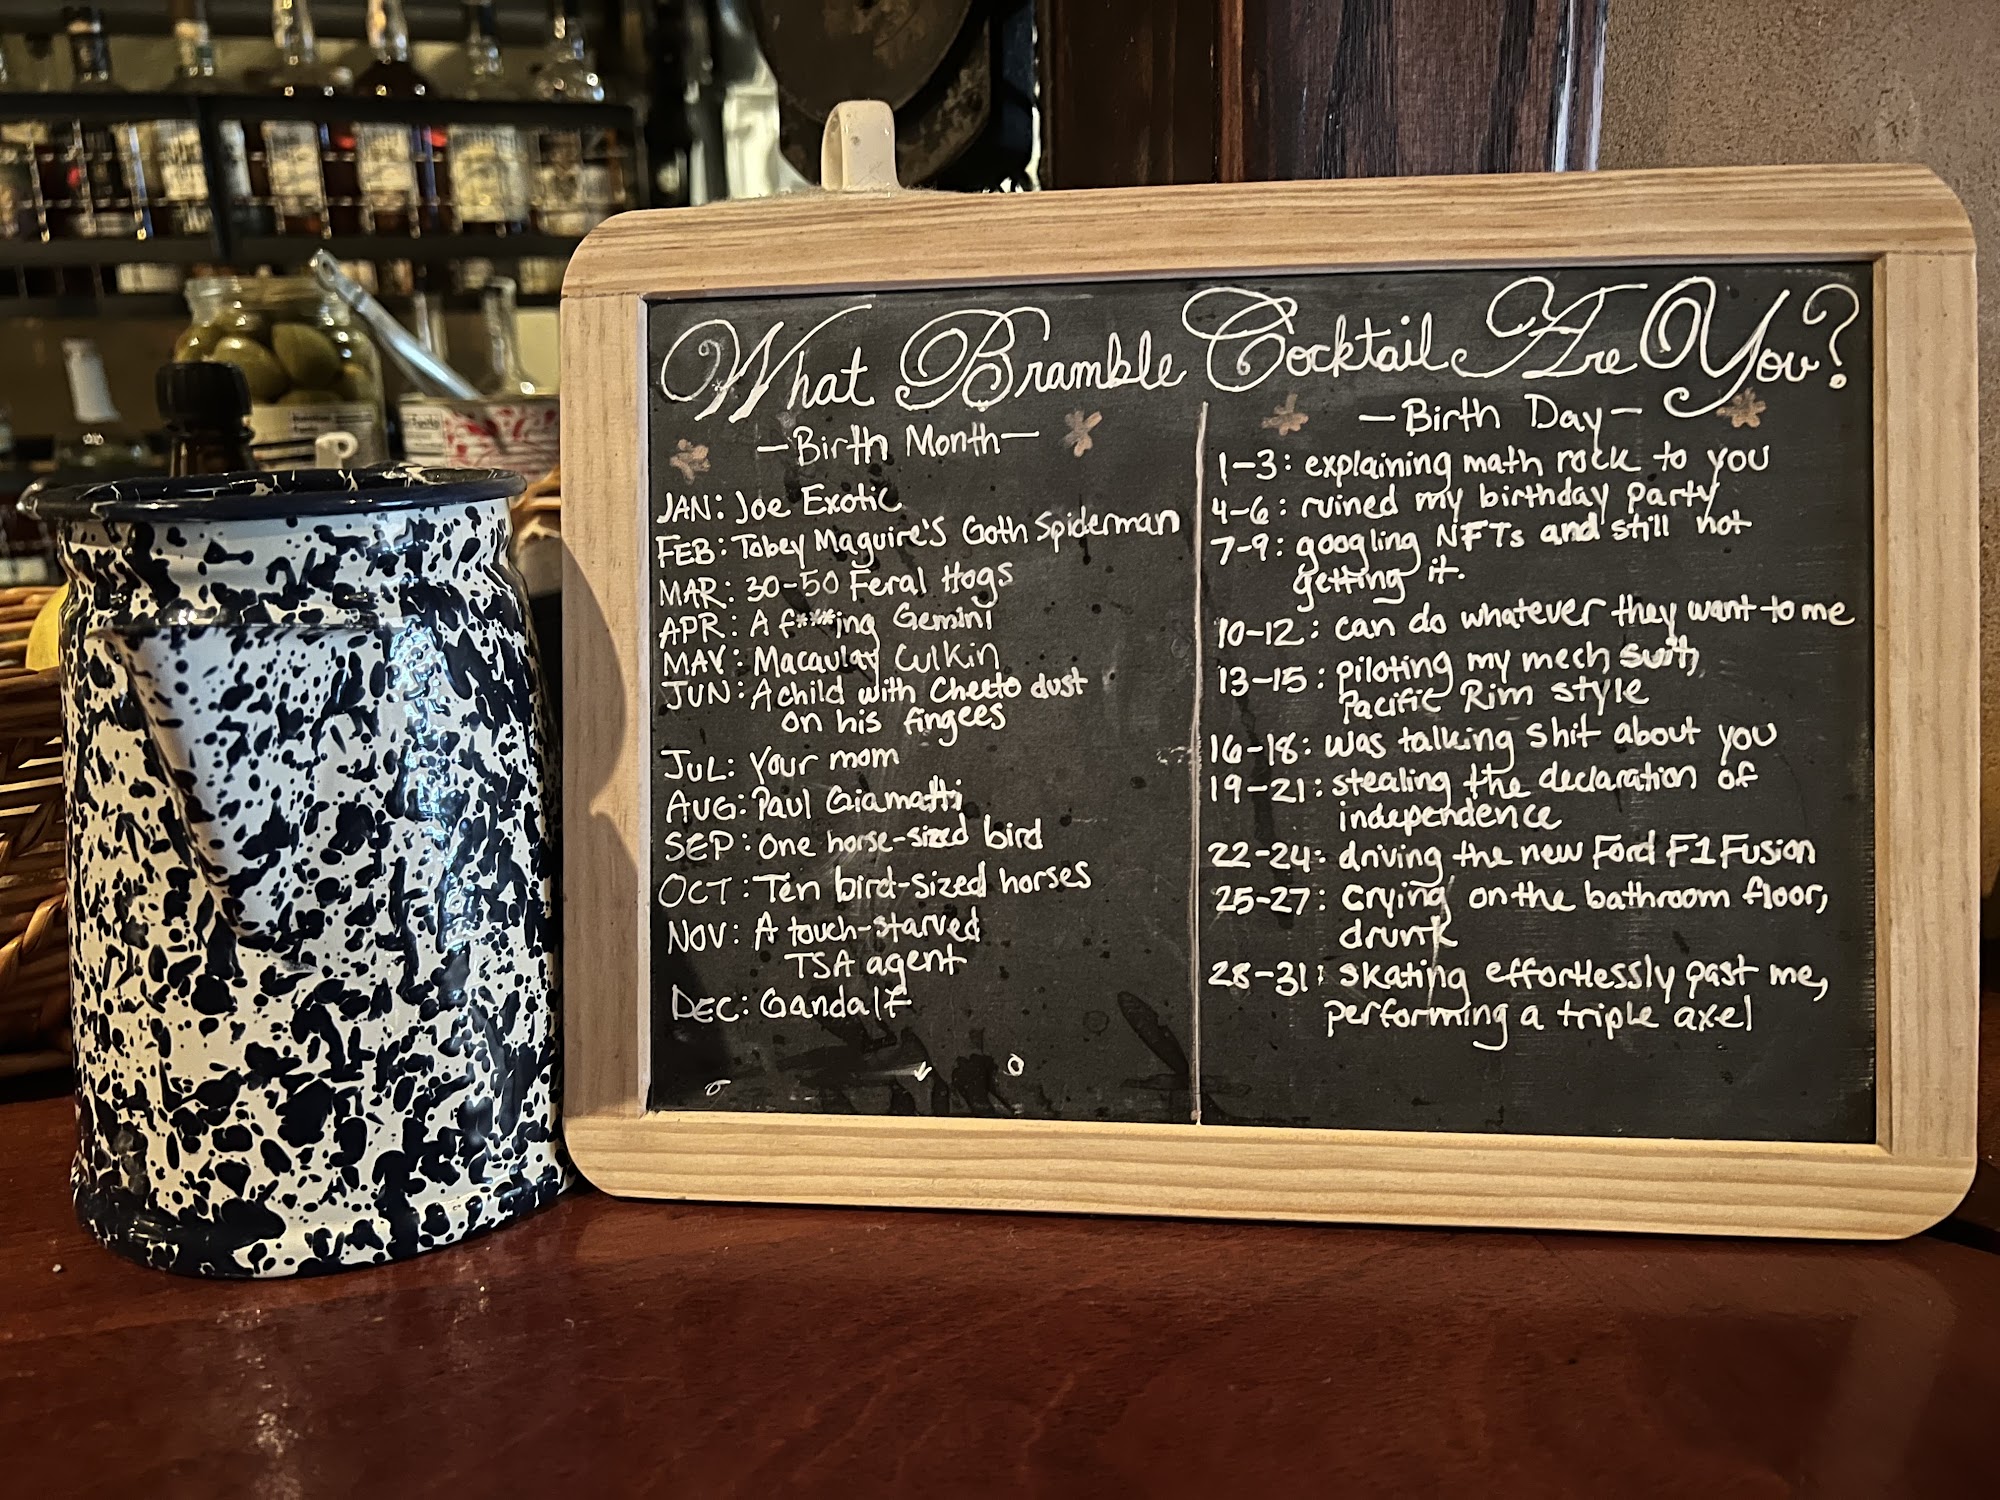 What Bramble Cocktail Are You?
—Birth Month—
JAN: Joe Exotic
FEB: Tobey Maguire's Goth Spiderman
MAR: 30-50 Feral Hogs
APR: A f***ing Gemini
MAY: Macaulay Culkin
JUN: A child with Cheeto dust
on his fingees
JUL: Your mom
AUG: Paul Giamatti
SEP: One horse-sized bird
OCT: Ten bird-sized horses
NOV: A touch-starved
TSA agent
DEC: Gandalf
—Birth Day—
1-3: explaining math rock to you
4-6: ruined my birthday party
7-9: googling NFTs and still not
getting it.
10-12: can do whatever they want to me
13-15: piloting my mech suit,
Pacific Rim style
16-18: was talking shit about you
19-21: stealing the declaration of
independence
22-24: driving the new Ford F1 Fusion
25-27: crying on the bathroom floor,
drunk
28-31: skating effortlessly past me,
performing a triple axel